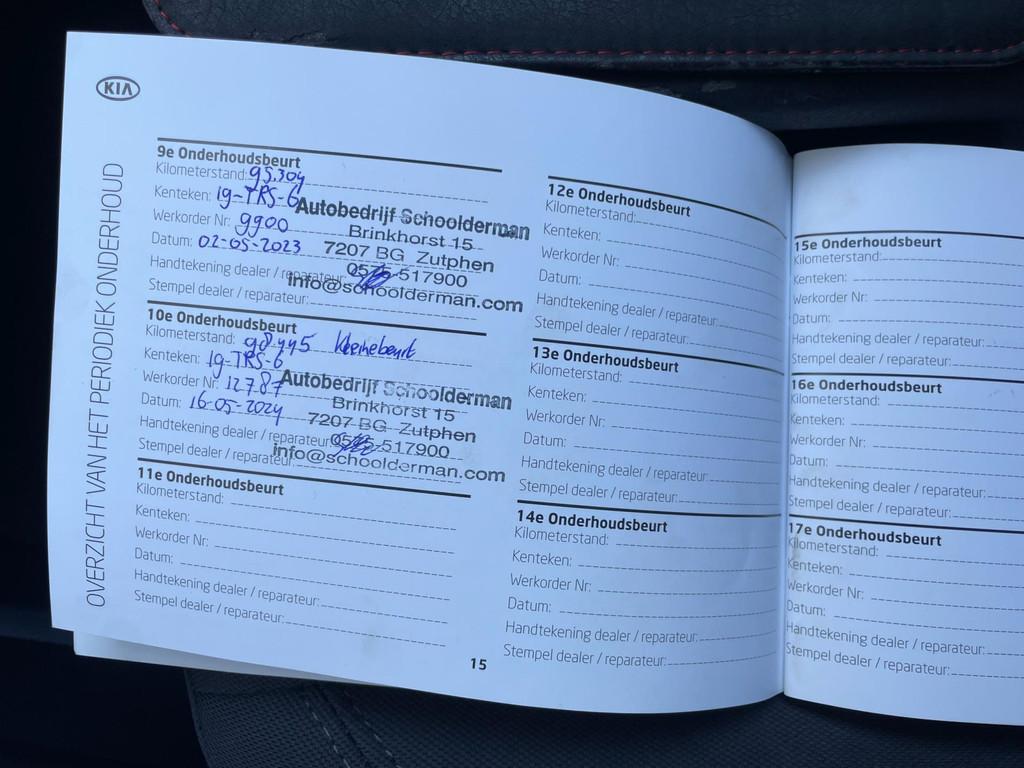 KIA
OVERZICHT VAN HET PERIODIEK ONDERHOUD
9e Onderhoudsbeurt
Kilometerstand: 95.304
Kenteken: 19-TRS-6
Werkorder Nr: 9900
Datum: 02-05-2023
Handtekening dealer / reparateur:
Stempel dealer / reparateur:
Autobedrijf Schoolderman
Brinkhorst 15
7207 BG Zutphen
0575-517900
info@schoolderman.com
10e Onderhoudsbeurt
Kilometerstand: 98.445 kleinebeurt
Kenteken: 19-TRS-6
Werkorder Nr: 12787
Datum: 16-05-2024
Handtekening dealer / reparateur:
Stempel dealer / reparateur:
Autobedrijf Schoolderman
Brinkhorst 15
7207 BG Zutphen
0575-517900
info@schoolderman.com
11e Onderhoudsbeurt
Kilometerstand:
Kenteken:
Werkorder Nr:
Datum:
Handtekening dealer / reparateur:
Stempel dealer / reparateur:
12e Onderhoudsbeurt
Kilometerstand:
Kenteken:
Werkorder Nr:
Datum:
Handtekening dealer / reparateur:
Stempel dealer / reparateur:
13e Onderhoudsbeurt
Kilometerstand:
Kenteken:
Werkorder Nr:
Datum:
Handtekening dealer / reparateur:
Stempel dealer / reparateur:
14e Onderhoudsbeurt
Kilometerstand:
Kenteken:
Werkorder Nr:
Datum:
Handtekening dealer / reparateur:
Stempel dealer / reparateur:
15
15e Onderhoudsbeurt
Kilometerstand:
Kenteken:
Werkorder Nr:
Datum:
Handtekening dealer / reparateur:
Stempel dealer / reparateur:
16e Onderhoudsbeurt
Kilometerstand:
Kenteken:
Werkorder Nr:
Datum:
Handtekening dealer / reparateur:
Stempel dealer / reparateur:
17e Onderhoudsbeurt
Kilometerstand:
Kenteken:
Werkorder Nr:
Datum:
Handtekening dealer / reparateur:
Stempel dealer / reparateur: